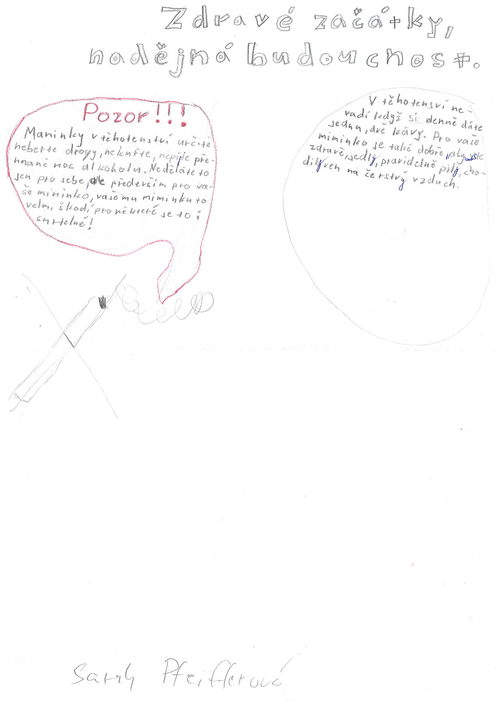 Zdravé začátky,
nadějná budoucnost.
Pozor!!!
Maminky v těhotenství určitě
neberte drogy, nekuřte, nepijte pře-
hnaně moc alkoholu. Neděláte to
jen pro sebe, ale především pro va-
še mininko, vašemu miminku to
velmi škodí pro některé se to i
smrtelné!
V těhotensví ne-
vadí když si denně dáte
jednu, dvě kávy. Pro vaše
miminko je také dobře, abyste
zdravě, jedly, pravidelně pily, cho-
dily ven na čerstvý vzduch.
Sarah Pfeifferová